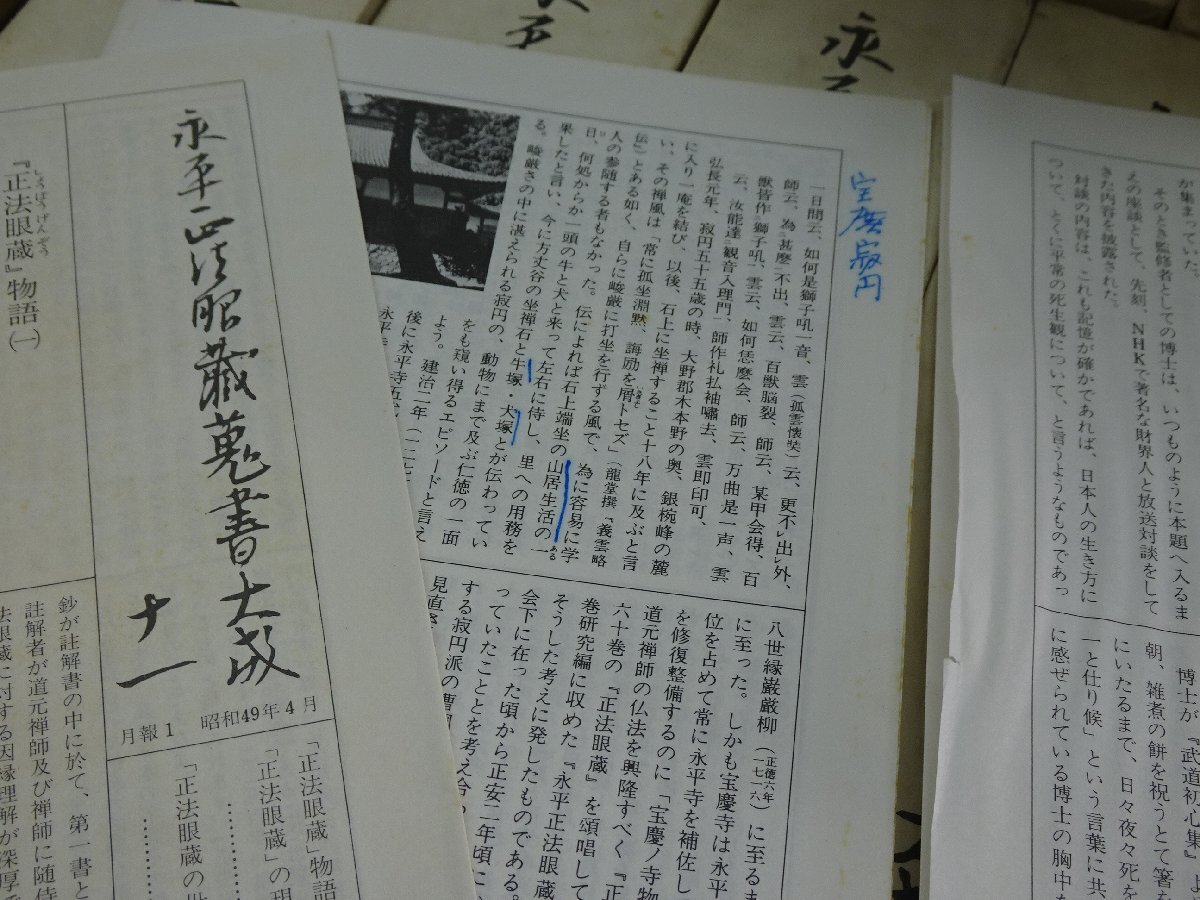 永平正法眼蔵蒐書大成
十一
月報1　昭和49年4月
『正法眼蔵』物語(一)
しょうぼうげんぞう
「正法眼蔵」物語
「正法眼蔵」の
「正法眼蔵の
鈔が註解書の中に於て、第一書と
註解者が道元禅師及び禅師に随侍
法眼蔵に対する因縁理解が深厚で
宝慶寂円
一日問云、如何是獅子吼一音、雲(孤雲懐奘)云、更不レ出レ外、
師云、為二甚麼一不出、雲云、百獣脳裂、師云、某甲会得、百
獣皆作二獅子吼一、雲云、如何恁麼会、師云、万曲是一声、雲
云、汝能達二観音入理門一、師作礼払袖嘯去、雲即印可、
弘長元年、寂円五十五歳の時、大野郡木本野の奥、銀椀峰の麓
に入り一庵を結び、以後、石上に坐禅すること十八年に及ぶと言
い、その禅風は「常に孤坐淵黙、誨励を屑トセズ」(龍堂撰『義雲略
伝』)とある如く、自らに峻厳に打坐を行ずる風で、為に容易に学
人の参随する者もなかった。伝によれば石上端坐の山居生活の一
日、何処からか一頭の牛と犬と来って左右に侍し、里への用務を
果したと言い、今に方丈谷の坐禅石と牛塚・犬塚とが伝わってい
る。峻厳さの中に湛えられる寂円の、動物にまで及ぶ仁徳の一面
をも窺い得るエピソードと言え
よう。建治二年(一二七
後に永平寺五
永平寺
八世縁巌厳柳(正徳六年一七一六)に至るま
に至った。しかも宝慶寺は永平
位を占めて常に永平寺を補佐し
を修復整備するのに「宝慶ノ寺物
道元禅師の仏法を興隆すべく『正
六十巻の『正法眼蔵』を頌唱して
巻研究編に収めた『永平正法眼蔵
そうした考えに発したものである。
会下に在った頃から正安二年頃に
っていたことを考え合
する寂円派の曹
見直さ
が集まっていた。
そのとき監修者としての博士は、いつものように本題へ入るま
えの座談として、先刻、NHKで著名な財界人と放送対談をして
きた内容を披露された。
対談の内容は、これも記憶が確かであれば、日本人の生き方に
ついて、とくに平常の死生観について、と言うようなものであっ
博士が『武道初心集』よ
朝、雑煮の餅を祝うとて箸を
にいたるまで、日々夜々死を
一と仕り候」という言葉に共
に感ぜられている博士の胸中を
永平